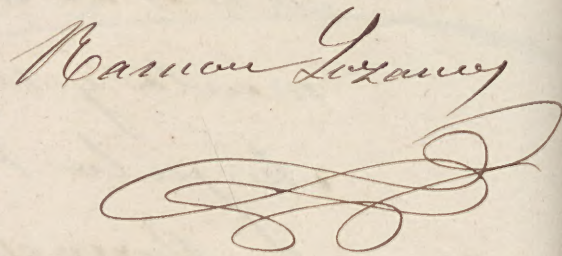 Ramon Lozano